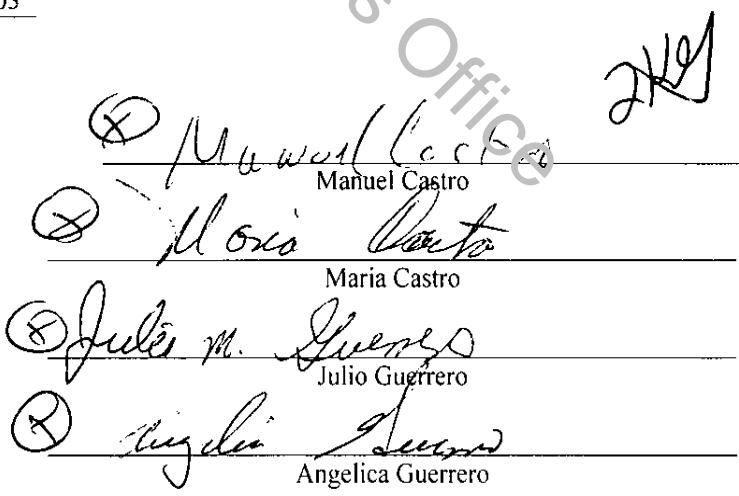 s Office
Manuel Castro
Manuel Castro
Maria Castro
Maria Castro
Julio M. Guerrero
Julio Guerrero
Angelica Guerrero
Angelica Guerrero